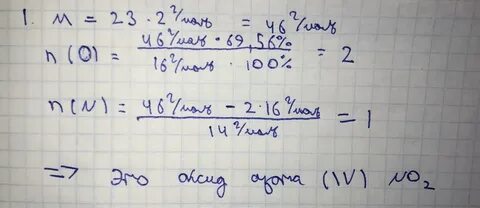 1. M = 23 · 2 г/моль = 46 г/моль
n(O) = 46 г/моль · 69,56% / 16 г/моль · 100% = 2
n(N) = 46 г/моль - 2·16 г/моль / 14 г/моль = 1
=> Это оксид азота (IV) NO₂